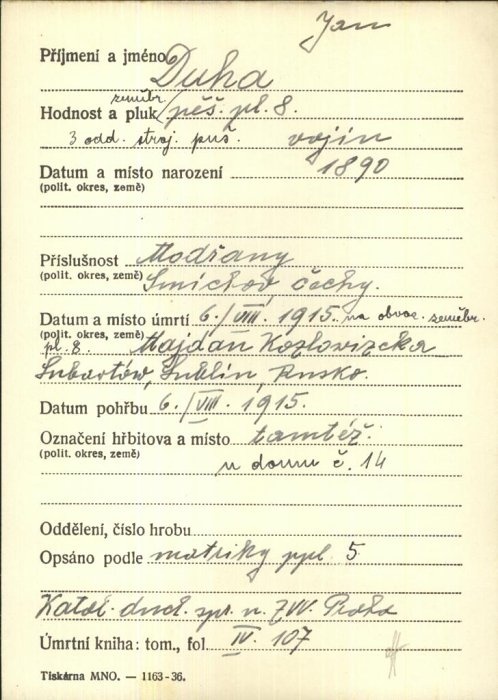 Jan
Příjmení a jméno Duha
zeměbr.
Hodnost a pluk pěš. pl. 8.
3 odd. stroj. puš. vojín
Datum a místo narození 1890
(polit. okres, země)
Příslušnost Modřany
(polit. okres, země) Smíchov, Čechy.
Datum a místo úmrtí 6./VIII. 1915. na obvaz. zeměbr.
(polit. okres, země)
pl. 8. Majdan Kozlowizcka
Lubartów, Lublin, Rusko.
Datum pohřbu 6./VIII. 1915.
Označení hřbitova a místo tamtéž.
(polit. okres, země) u domu č. 14
Oddělení, číslo hrobu
Opsáno podle matriky ppl. 5
Katol. duch. spr. u ZVV. Praha
Úmrtní kniha: tom., fol. IV. 107
Tiskárna MNO. — 1163-36.